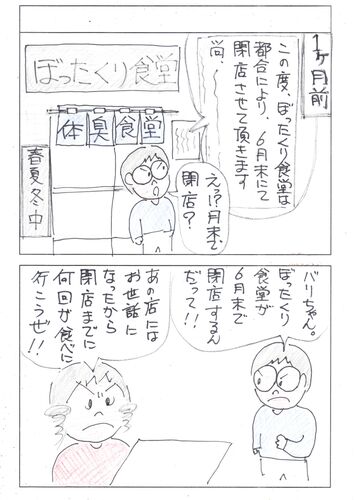 1ヶ月前
この度、ぼったくり食堂は
都合により、6月末にて
閉店させて頂きます
尚、〜
ぼったくり食堂
体臭食堂
春夏冬中
えっ!?月末で
閉店?
バリちゃん。
ぼったくり
食堂が
6月末で
閉店するん
だって!!
あの店には
お世話に
なったから
閉店までに
何回か食べに
行こうぜ!!